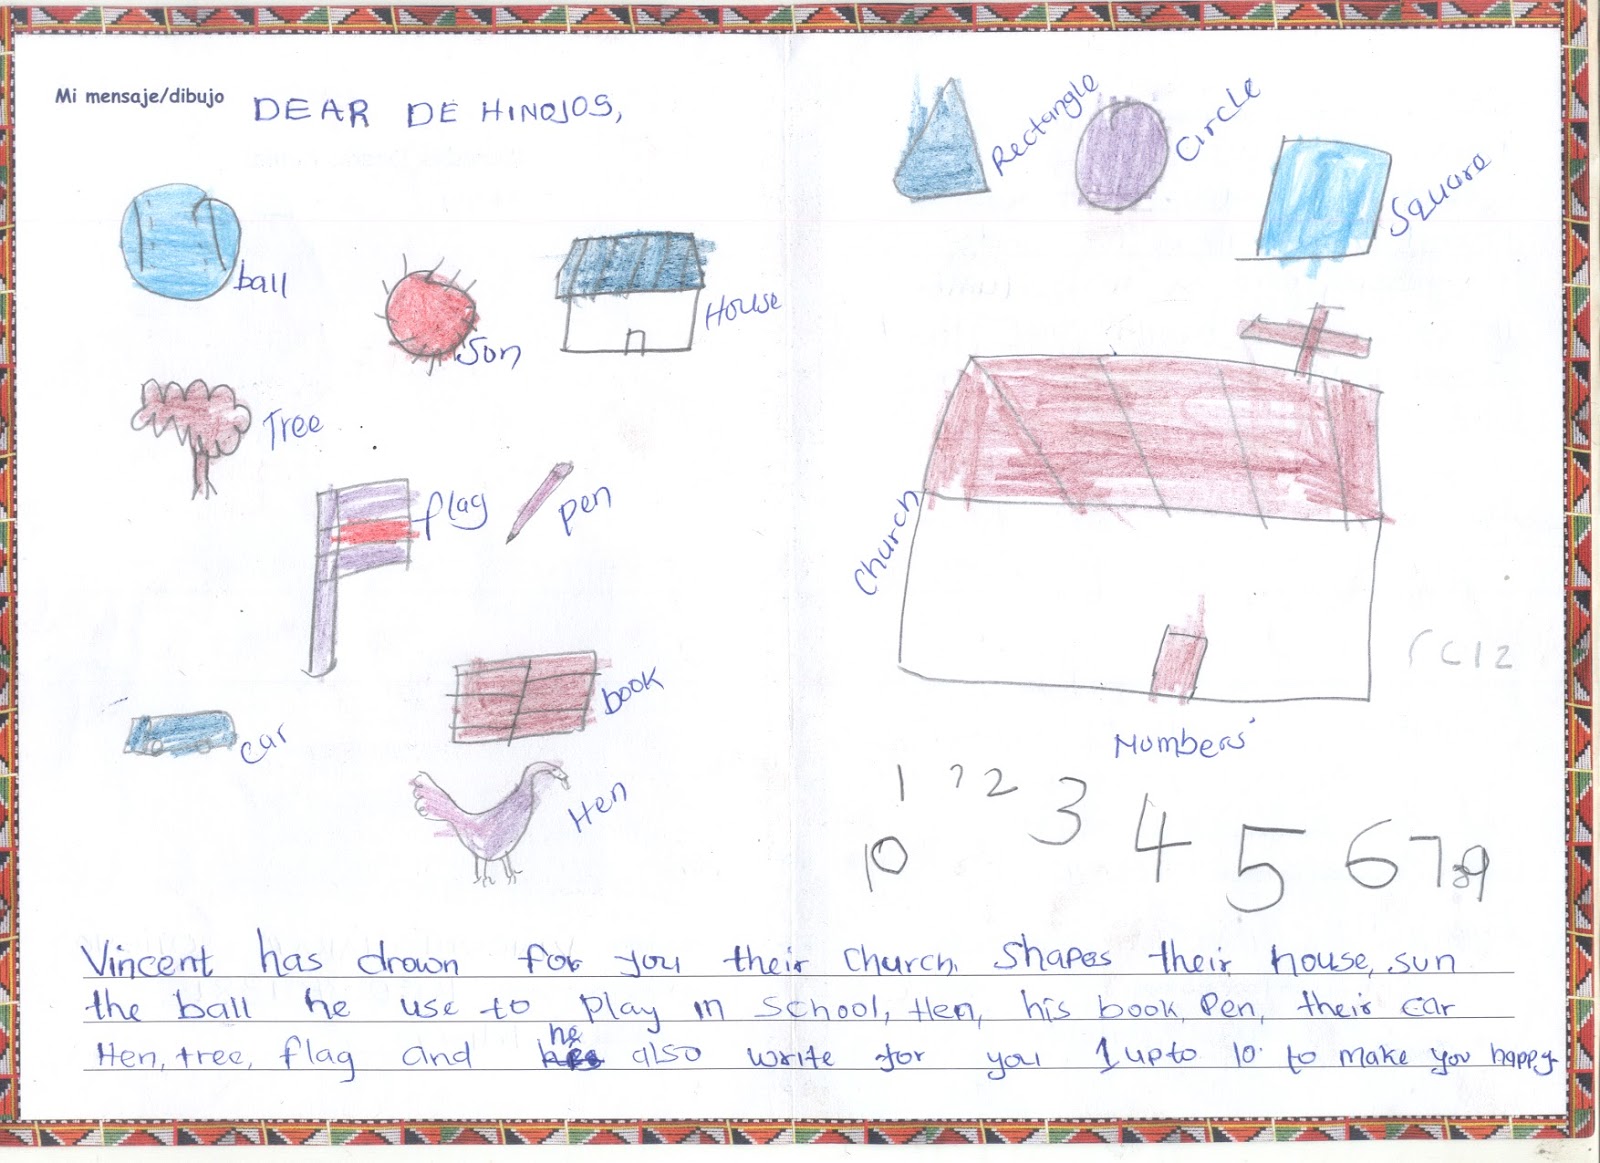 Mi mensaje/dibujo
DEAR DE HINOJOS,
ball
Sun
House
Tree
flag
pen
car
book
Hen
Rectangle
Circle
Square
Church
Numbers
1 2 2 3 4 5 6 7 8 9
10
Vincent has drown for you their church. Shapes their house, sun
the ball he use to play in school, Hen, his book, Pen, their car
Hen, tree, flag and he also write for you 1 upto 10 to make you happy